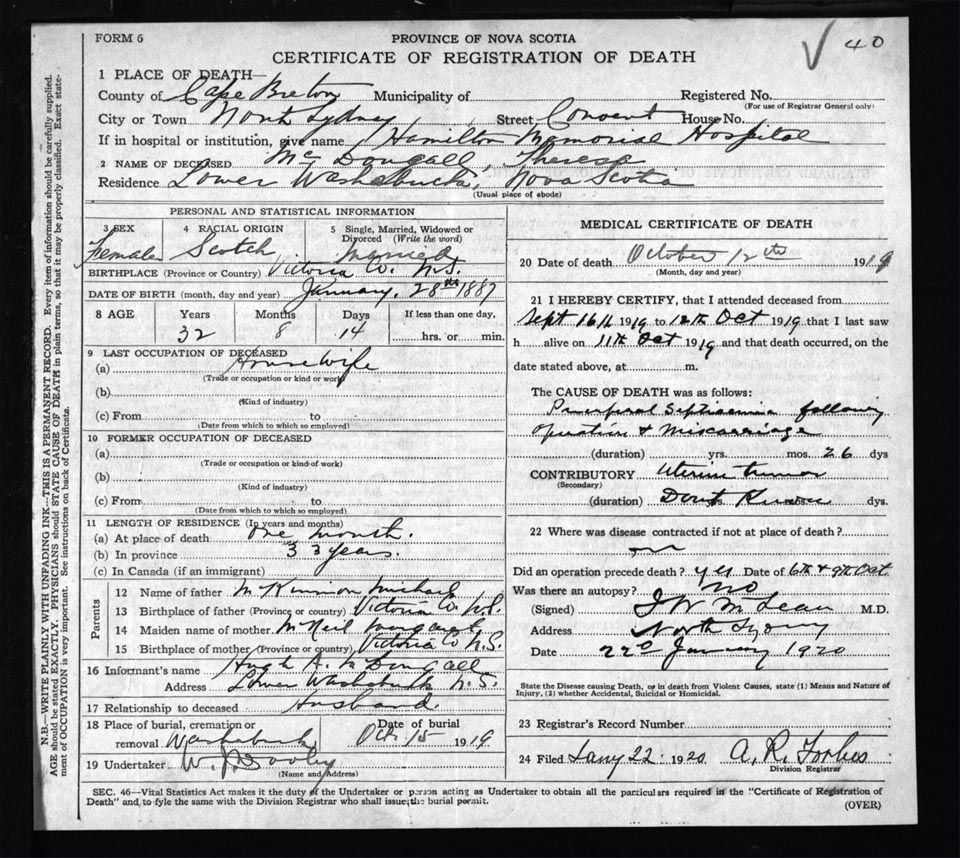 FORM 6
PROVINCE OF NOVA SCOTIA
40
CERTIFICATE OF REGISTRATION OF DEATH
1 PLACE OF DEATH—
County of Cape Breton Municipality of Registered No.
(For use of Registrar General only)
City or Town North Sydney Street Convent House No.
If in hospital or institution, give name Hamilton Memorial Hospital
2 NAME OF DECEASED McDougall, Theresa
Residence Lower Washabuckt, Nova Scotia
(Usual place of abode)
PERSONAL AND STATISTICAL INFORMATION
3 SEX 4 RACIAL ORIGIN 5 Single, Married, Widowed or Divorced (Write the word)
Female Scotch Married
BIRTHPLACE (Province or Country) Victoria Co. N.S.
DATE OF BIRTH (month, day and year) January, 28th 1887
8 AGE Years Months Days If less than one day,
32 8 14 hrs. or min.
9 LAST OCCUPATION OF DECEASED
(a) Housewife
(Trade or occupation or kind of work)
(b)
(Kind of industry)
(c) From to
(Date from which to which so employed)
10 FORMER OCCUPATION OF DECEASED
(a)
(Trade or occupation or kind of work)
(b)
(Kind of industry)
(c) From to
(Date from which to which so employed)
11 LENGTH OF RESIDENCE (In years and months)
(a) At place of death One month.
(b) In province 33 years.
(c) In Canada (if an immigrant)
Parents
12 Name of father McKinnon Michael
13 Birthplace of father (Province or country) Victoria Co. N.S.
14 Maiden name of mother McNeil Margaret
15 Birthplace of mother (Province or country) Victoria Co N.S.
16 Informant's name Hugh A. McDougall
Address Lower Washabuckt N.S.
17 Relationship to deceased Husband.
18 Place of burial, cremation or removal Washabuckt Date of burial Oct. 15 1919
19 Undertaker W. J. Dooley
(Name and Address)
MEDICAL CERTIFICATE OF DEATH
20 Date of death October 12th 1919
(Month, day and year)
21 I HEREBY CERTIFY, that I attended deceased from
Sept 16th 1919 to 12th Oct 1919 that I last saw
h alive on 11th Oct 1919 and that death occurred, on the
date stated above, at m.
The CAUSE OF DEATH was as follows:
Puerperal Septicaemia following
operation & Miscarriage
(duration) yrs. mos. 26 dys
CONTRIBUTORY Uterine tumor
(Secondary)
(duration) Dont Know dys.
22 Where was disease contracted if not at place of death?
Did an operation precede death? yes Date of 6th & 9th Oct
Was there an autopsy? NO
(Signed) J W McLean M.D.
Address North Sydney
Date 22nd January 1920
State the Disease causing Death, or in death from Violent Causes, state (1) Means and Nature of
Injury, (2) whether Accidental, Suicidal or Homicidal.
23 Registrar's Record Number
24 Filed Jany 22 1920 A. R. Forbes
Division Registrar
SEC. 46—Vital Statistics Act makes it the duty of the Undertaker or person acting as Undertaker to obtain all the particulars required in the "Certificate of Registration of
Death" and to fyle the same with the Division Registrar who shall issue the burial permit.
(OVER)
N.B.—WRITE PLAINLY WITH UNFADING INK—THIS IS A PERMANENT RECORD. Every item of information should be carefully supplied.
AGE should be stated EXACTLY. PHYSICIANS should STATE CAUSE OF DEATH in plain terms, so that it may be properly classified. Exact state-
ment of OCCUPATION is very important. See instructions on back of Certificate.